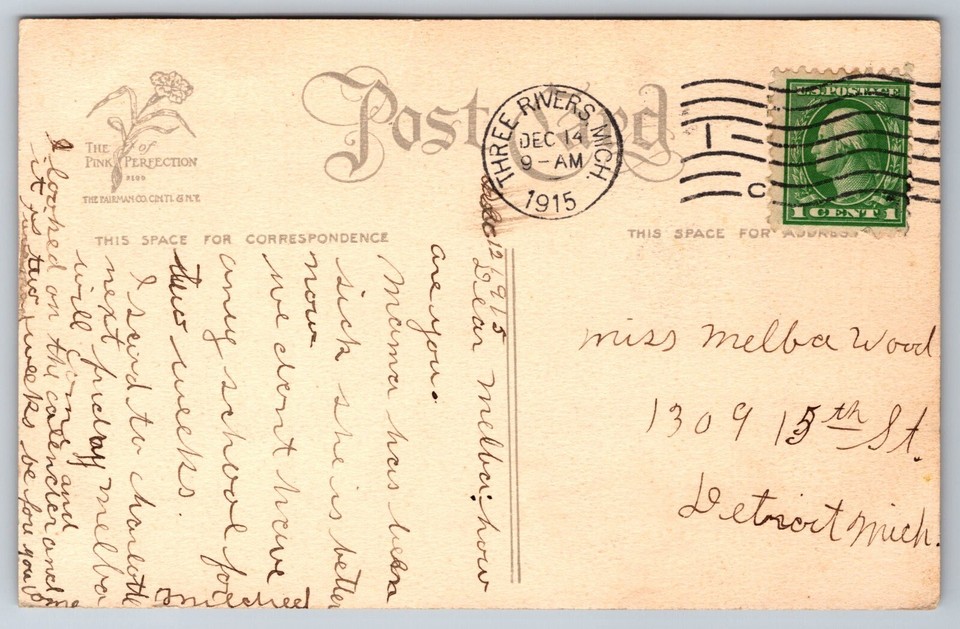 Post Card
THE of
PINK PERFECTION
THE FAIRMAN CO. CIN'TI. & N.Y.
THREE RIVERS, MICH.
DEC 14
9-AM
1915
U.S. POSTAGE
1 CENT 1
THIS SPACE FOR CORRESPONDENCE
THIS SPACE FOR ADDRESS
Dec 12 1915
Dear Melba: how
are you.
Mama has been
sick she is better
now
we dont have
any school for
two weeks.
I said to charlotte
next friday melba
will come and
I looked on the calender and
it is two weeks be for you
mildred
miss melba Wood
1309 15th St.
Detroit Mich.